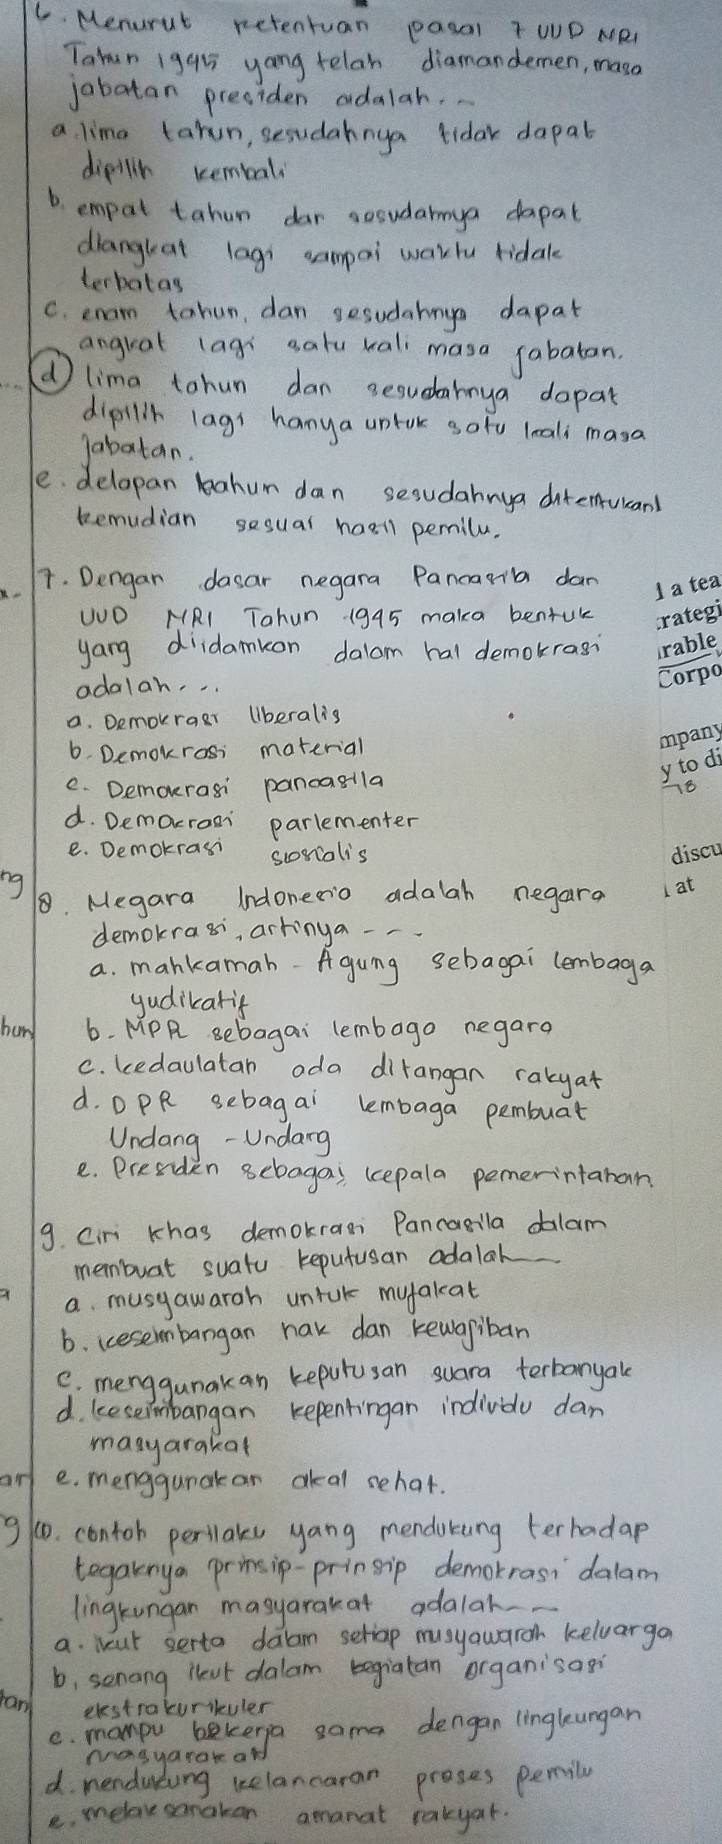 6. Menurut retentuan pasal 7 UUD NRI
Tahun 1945 yang telah diamandemen, masa
jabatan presiden adalah...
a. lima tahun, sesudahnya tidak dapat
dipilih kembali
b. empat tahun dan sesudahnya dapat
diangkat lagi sampai waktu tidak
terbatas
c. enam tahun, dan sesudahnya dapat
angkat lagi satu kali masa jabatan.
d lima tahun dan sesudahnya dapat
dipilih lagi hanya untuk satu kali masa
jabatan.
e. delapan tahun dan sesudahnya ditentukan
kemudian sesuai hasil pemilu.
7. Dengan dasar negara Pancasila dan
UUD NRI Tahun 1945 maka bentuk
yang diidamkan dalam hal demokrasi
adalah...
a. Demokrasi liberalis
b. Demokrasi material
c. Demokrasi pancasila
d. Demokrasi parlementer
e. Demokrasi sosialis
8. Negara Indonesia adalah negara
demokrasi, artinya...
a. mahkamah - Agung sebagai lembaga
yudikatif
b. MPR sebagai lembaga negara
c. kedaulatan ada ditangan rakyat
d. DPR sebagai lembaga pembuat
Undang - Undang
e. Presiden sebagai kepala pemerintahan.
9. Ciri khas demokrasi Pancasila dalam
membuat suatu keputusan adalah
a. musyawarah untuk mufakat
b. keseimbangan hak dan kewajiban
c. menggunakan keputusan suara terbanyak
d. keseimbangan kepentingan individu dan
masyarakat
e. menggunakan akal sehat.
10. contoh perilaku yang mendukung terhadap
tegaknya prinsip-prinsip demokrasi dalam
lingkungan masyarakat adalah
a. ikut serta dalam setiap musyawarah keluarga
b. senang ikut dalam kegiatan organisasi
ekstrakurikuler
c. mampu bekerja sama dengan lingkungan
masyarakat
d. mendukung kelancaran proses pemilu
e. melaksanakan amanat rakyat.
1 a tea
rategi
rable
Corpo
mpany
y to di
discu
at
ng
hun